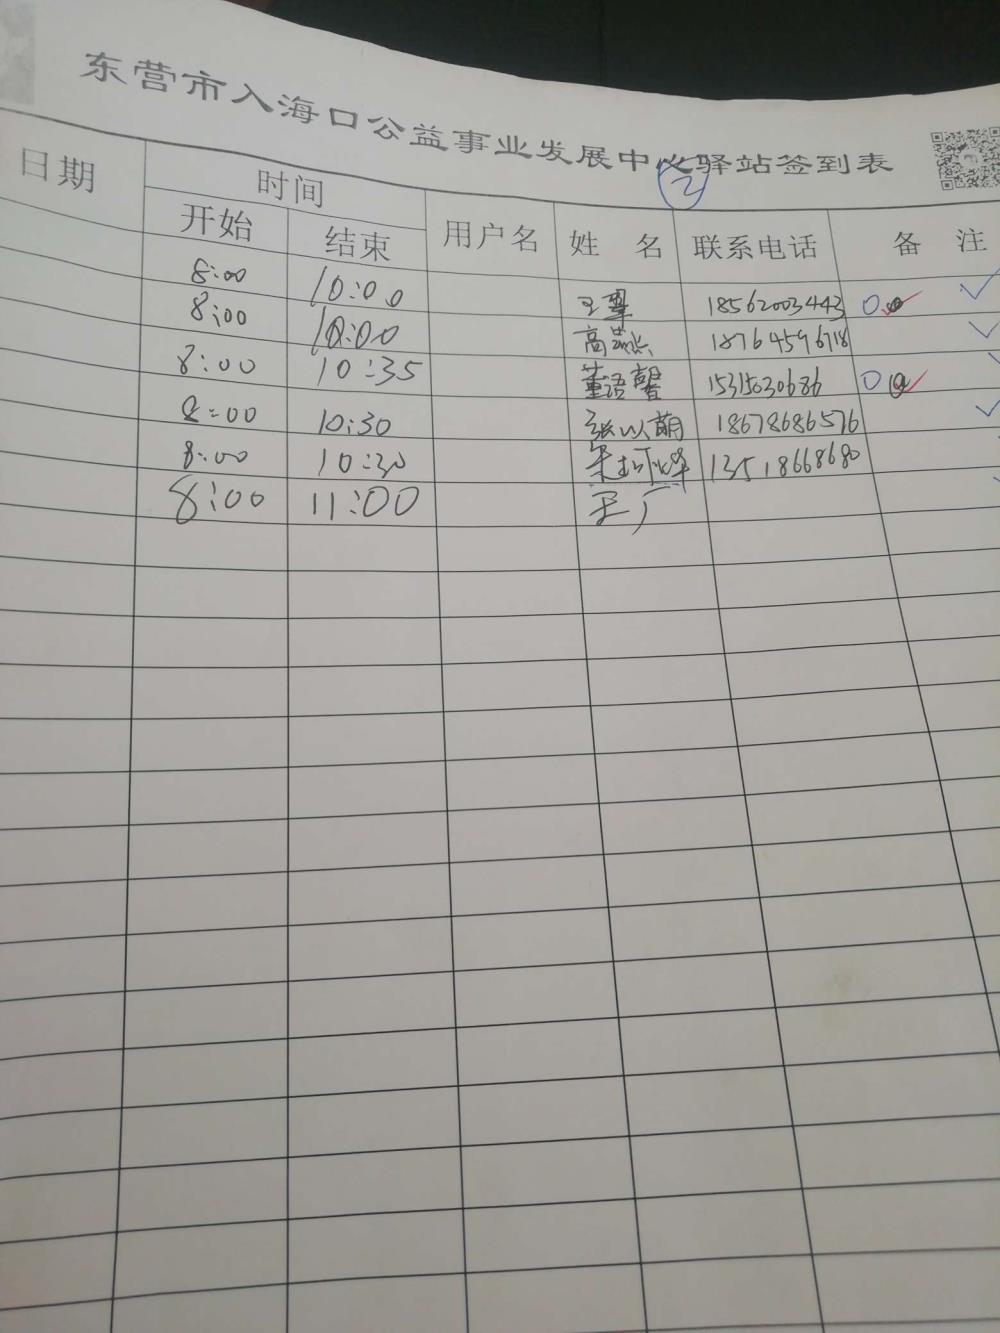 东营市入海口公益事业发展中心驿站签到表
2
日期 时间 用户名 姓 名 联系电话 备 注
开始 结束
8:00 10:00 王翠 18562003443 0
8:00 10:00 高燕 18764596718
8:00 10:35 董语馨 15315030686 0
8:00 10:30 张以萌 18678686576
8:00 10:30 13518668680
8:00 11:00